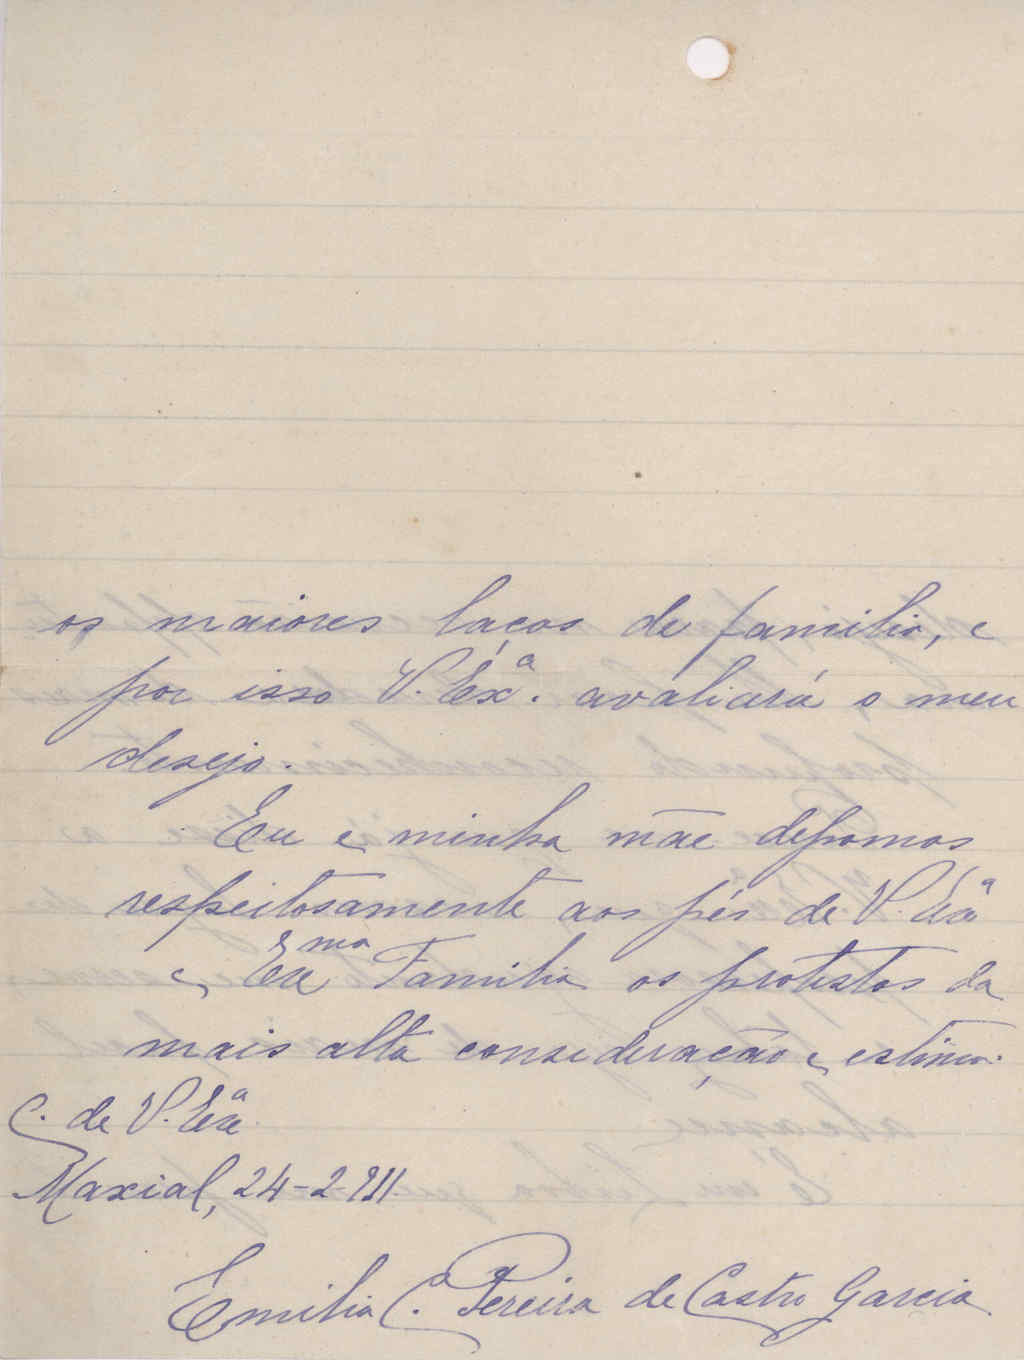 os maiores laços de familia, e
por isso V. Exª. avaliará o meu
desejo.
Eu e minha mãe depomos
respeitosamente aos pés de V. Exª
e Exma Familia os protestos da
mais alta consideração e estima.
C. de V. Exª
Maxial, 24-2-911.
Emilia C. Pereira de Castro Garcia